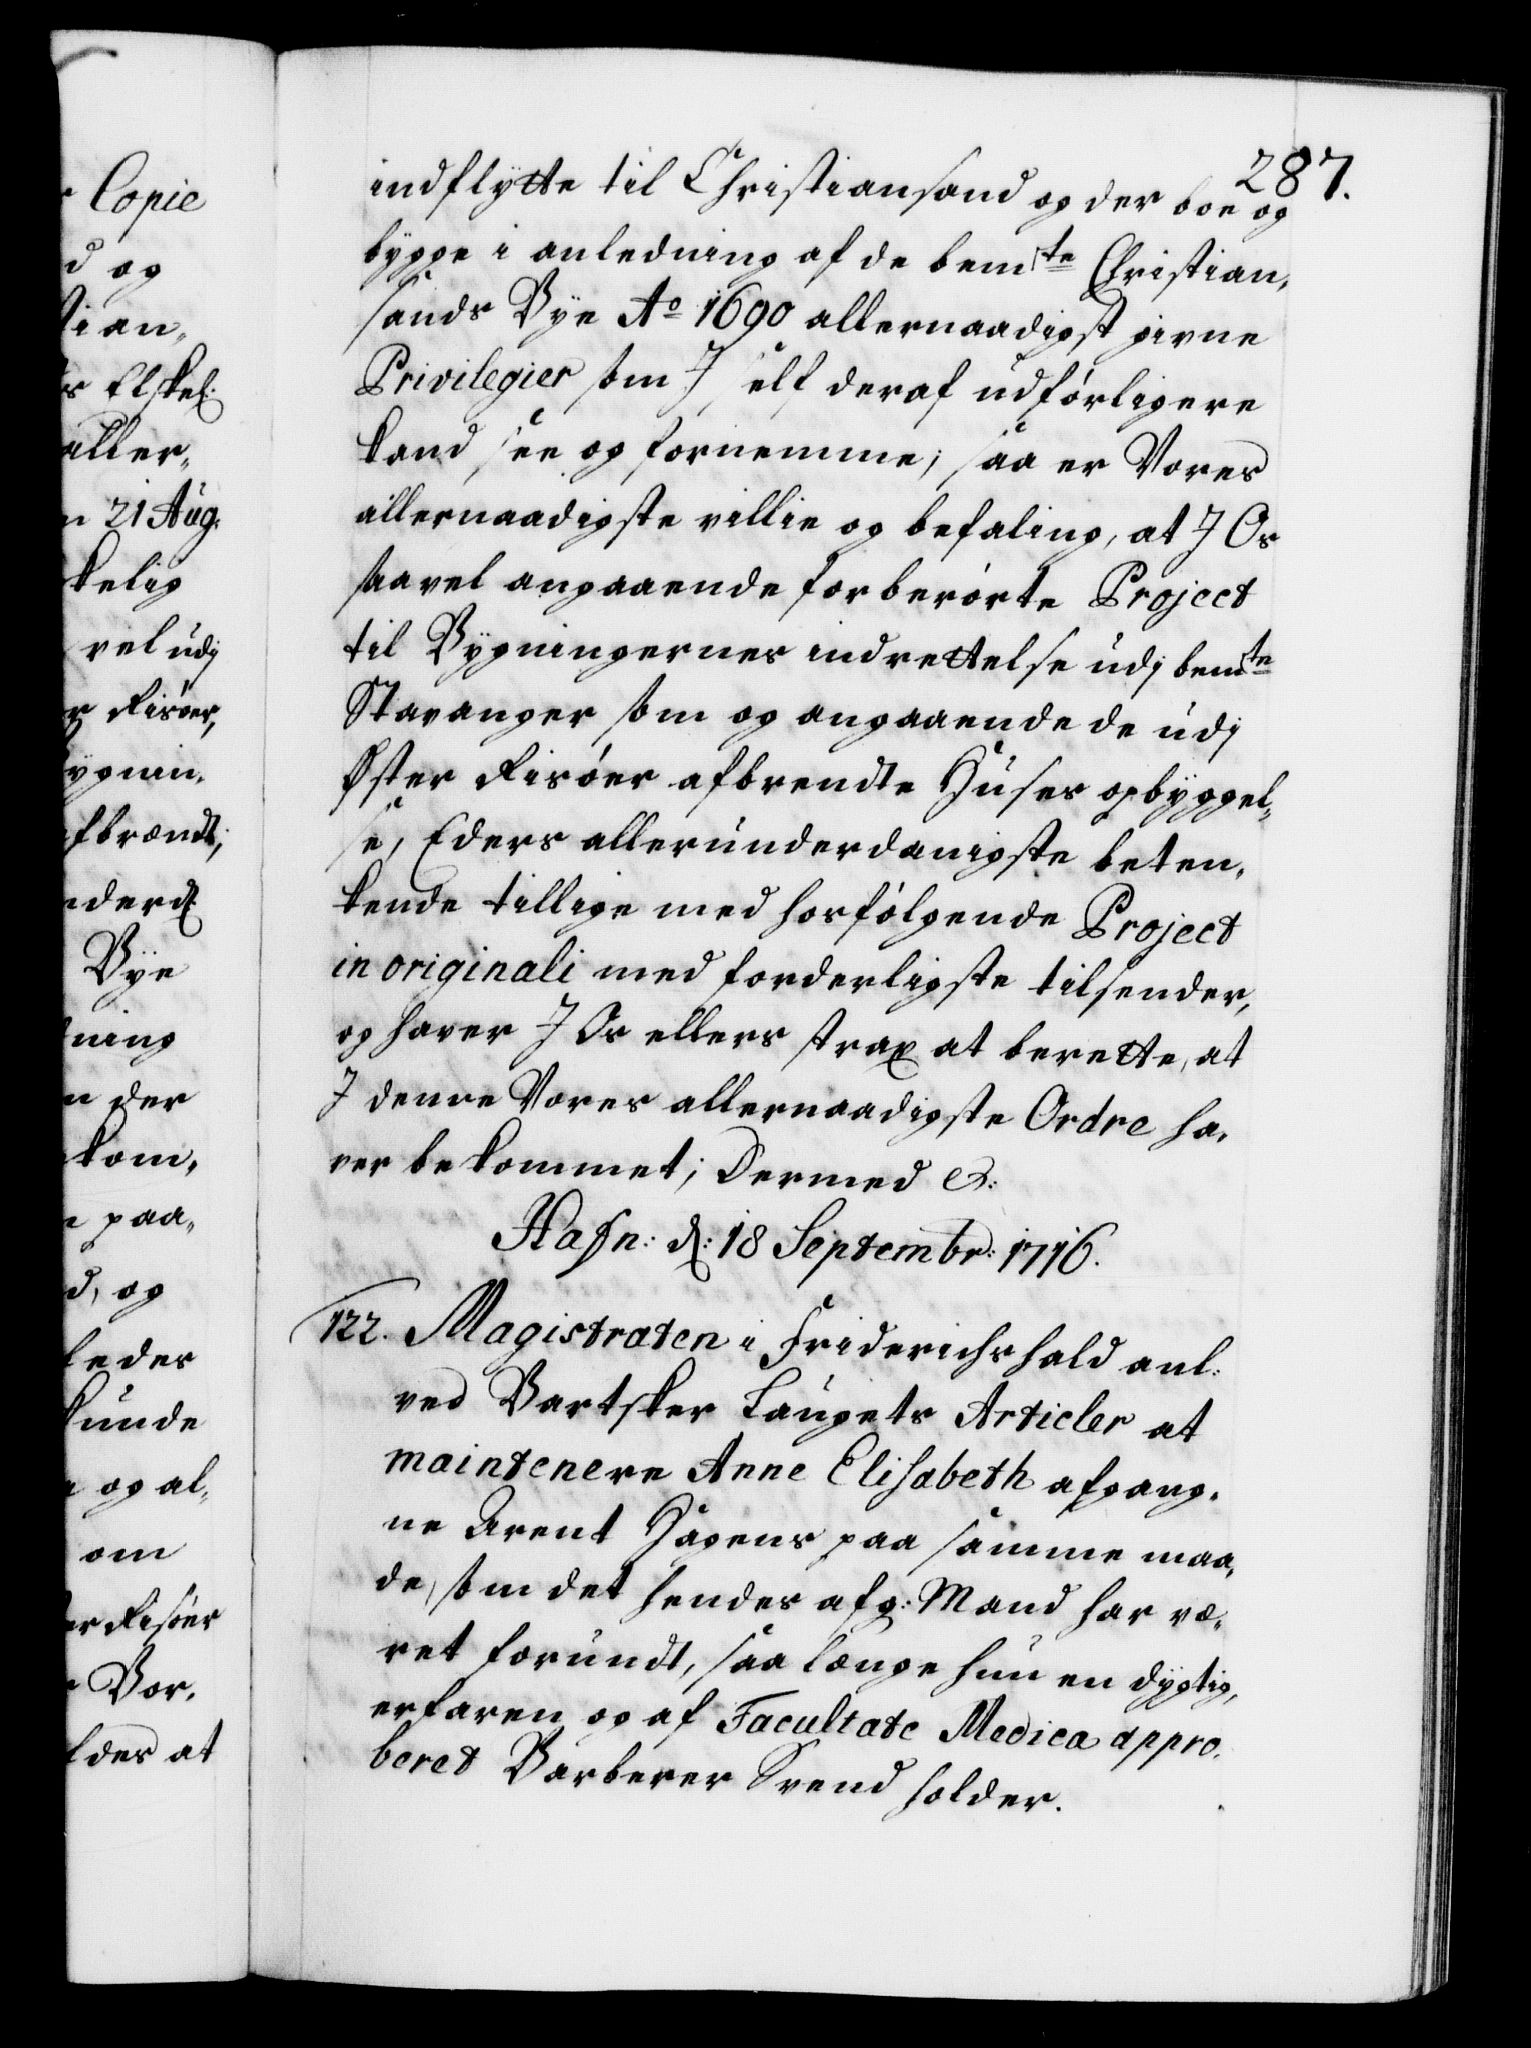 Copie
d og
tian„
rs Elskel:
aller„
n 21 Aug:
kelig
vel udj
r Risøer,
ygnin„
fbrændt;
nderd
Bye
ning
n der
kom„
e paa„
d, og
ledes
kunde
e og al„
om
er Risøer
e Bor„
ldes at
287.
indflÿtte til Christiansand og der boe og
bÿgge i anledning af de bemte Christian„
sands Bÿe Ao 1690 allernaadigst givne
Privilegier som I self deraf udførligere
kand see og fornemme; saa er Vores
allernaadigste villie og befaling, at I Os
saavel angaaende forberørte Project
til Bÿgningernes indrettelse udj bemte
Stavanger som og angaaende de udj
Øster Risøer afbrendte Huses opbÿggel„
se, Eders allerunderdanigste beten„
kende tillige med hosfølgende Project
in originali med forderligste tilsender,
og haver I Os ellers strax at berette, at
I denne Vores allernaadigste Ordre ha„
ver bekommet; Dermed &:
Hafn: d: 18 Septembr: 1716.
122. Magistraten i Friderichshald anl:
ved Bartsker Laugets Articler at
maintenere Anne Elisabeth afgang„
ne Arent Hagens paa samme maa„
de, som det hendes afg: Mand har væ„
ret forundt, saa længe hun en dygtig,
erfaren og af Facultate Medica appro„
beret Barberer Svend holder.